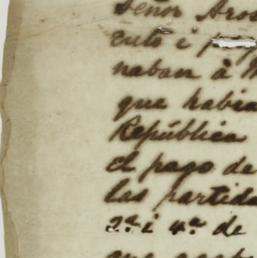 Señor Aros
cuto i p
naban à
que habia
República
el pago de
las partida
2ª i 4ª de